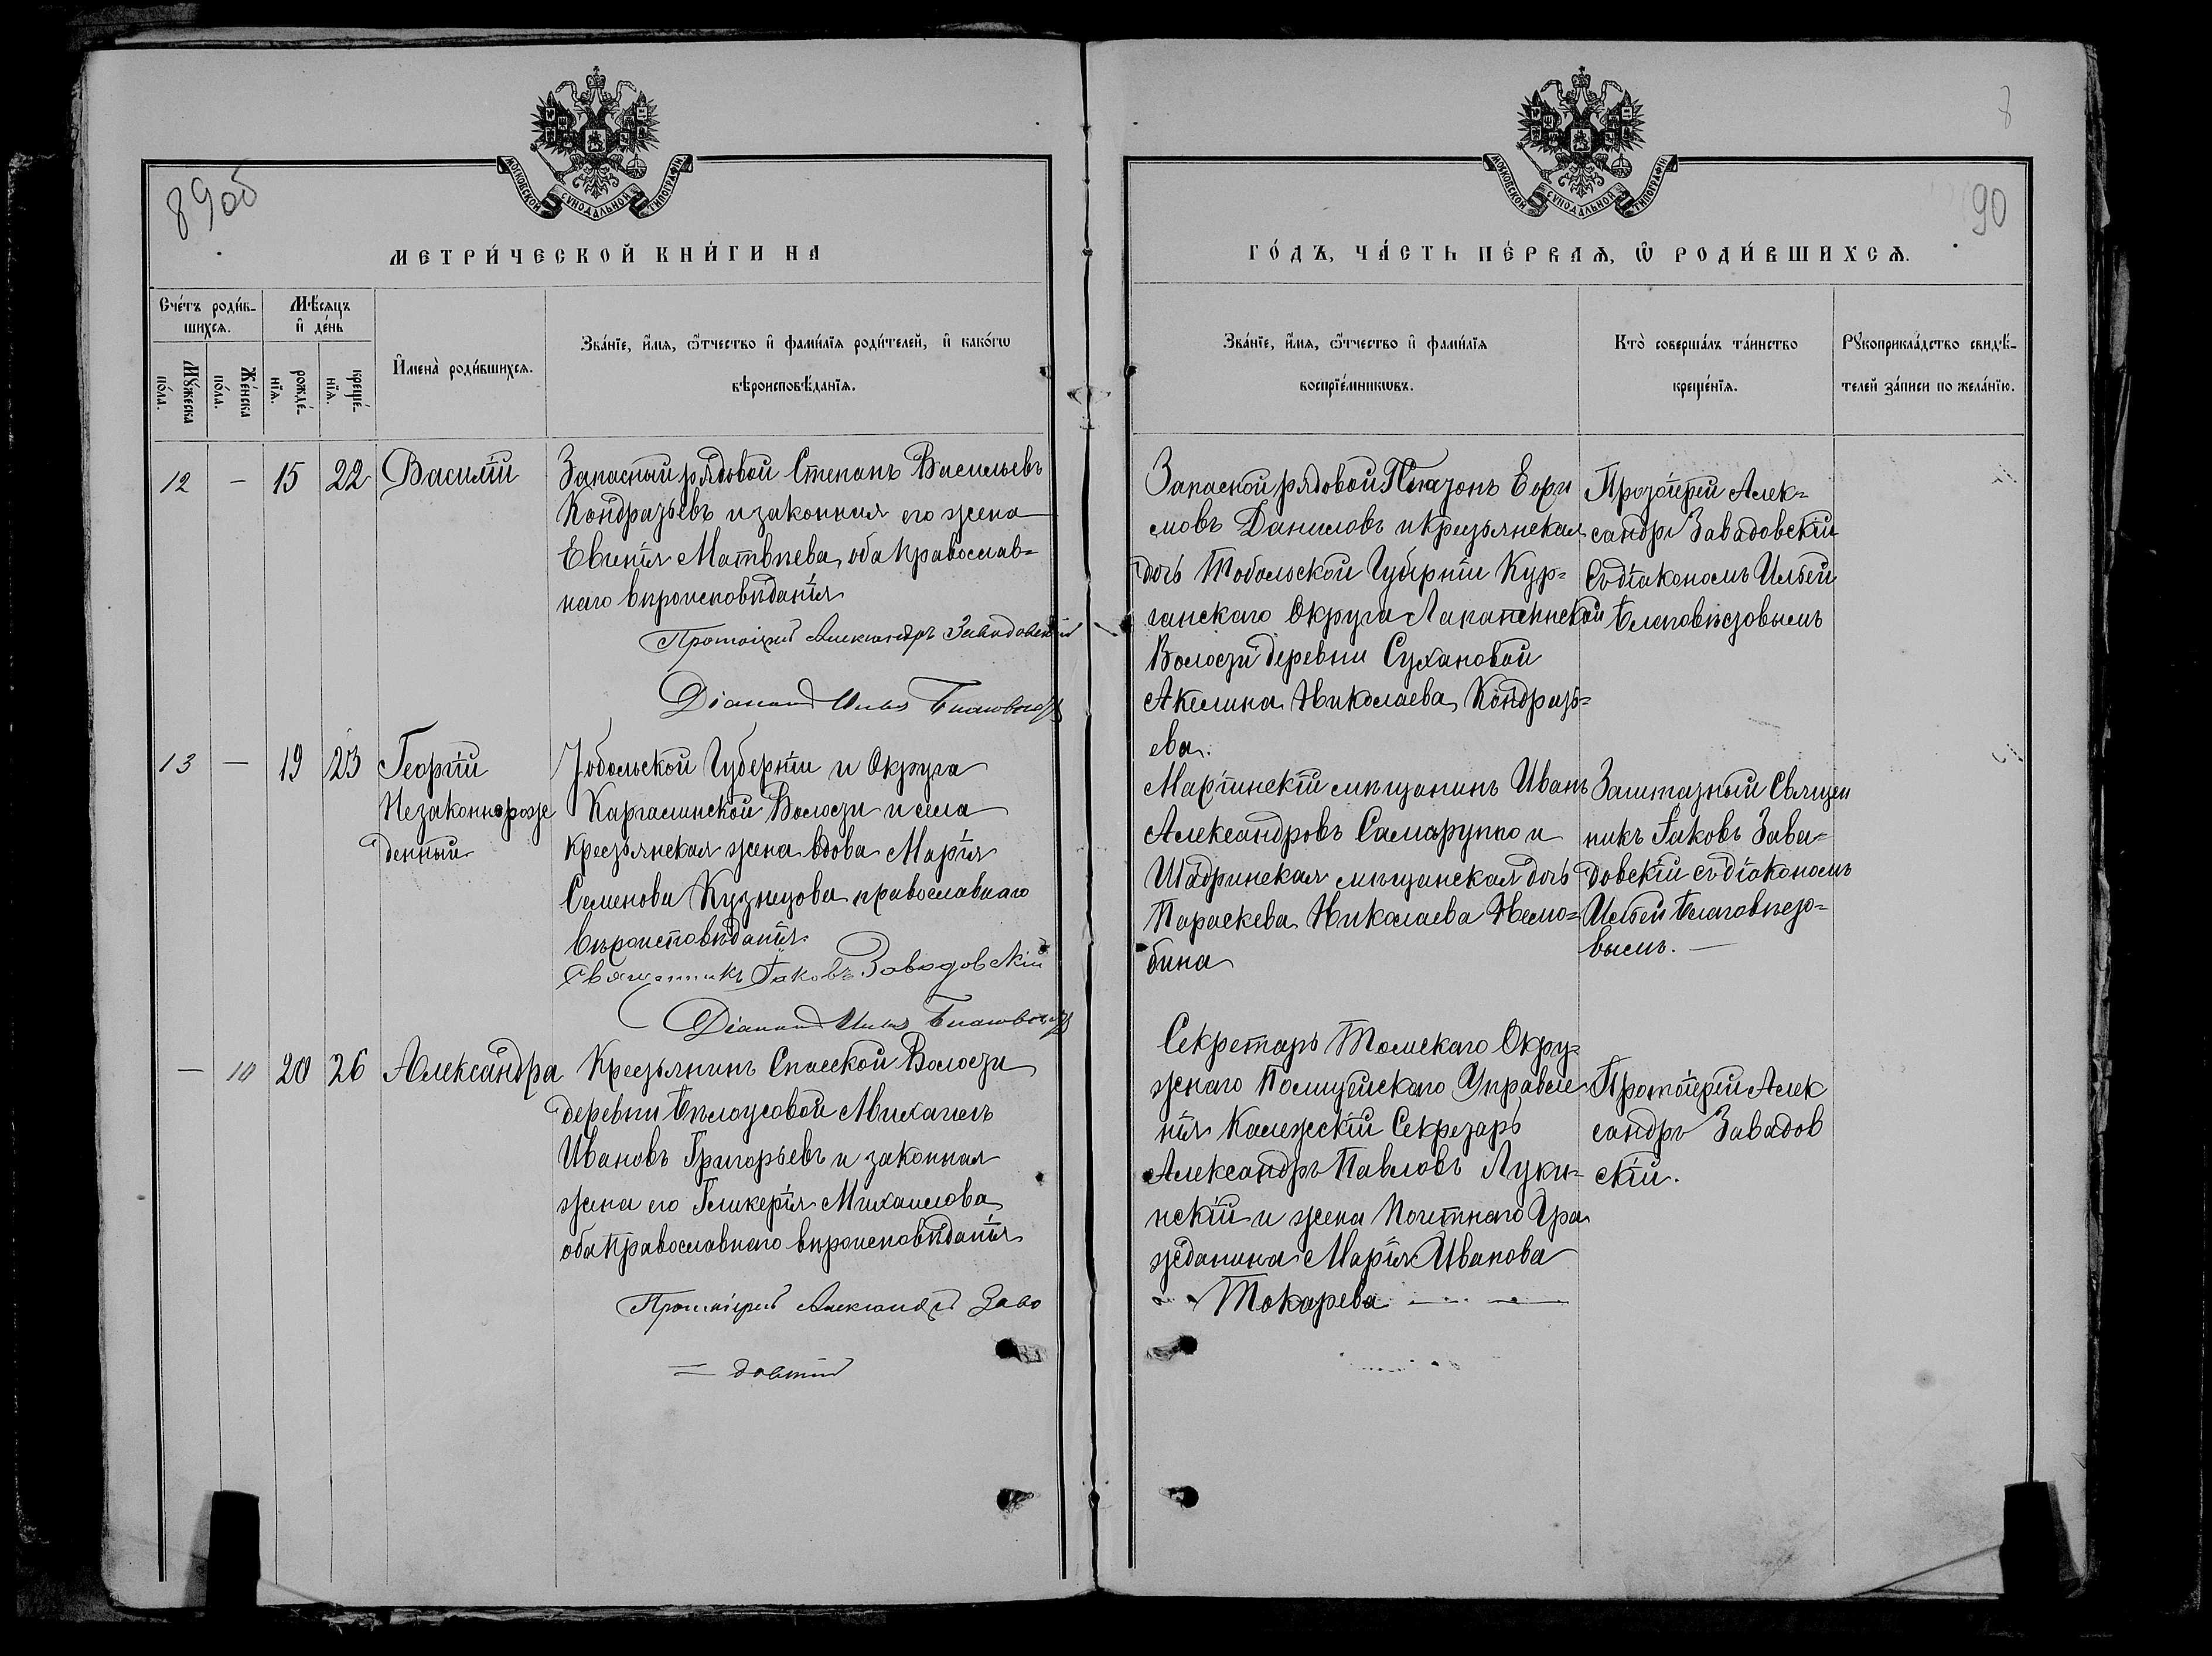 89об
МОСКОВСКОЙ СУНОДАЛЬНОЙ ТИПОГРАФІИ
МЕТРИ́ЧЕСКОЙ КНИ́ГИ НА
Сче́тъ роди́в-
шихся.
Мѣ́сяцъ
и҆ де́нь
Мꙋ́жеска
по́ла.
Же́нска
по́ла.
рожде́-
нїя.
креще́-
нїя.
И҆мена̀ роди́вшихся.
Зва́нїе, и҆́мя, ѻ҆́тчество и҆ фами́лїя роди́телей, и҆ како́гѡ
вѣроисповѣ́данїя.
12 — 15 22 Василій
Запасный рядовой Степанъ Васильевъ
Кондратьевъ и законная его жена
Евгенія Матвѣева, оба православ=
наго вѣроисповѣданія
Протоіерей Александръ Завадовскій
Діаконъ Илья
13 — 19 23 Георгій
Незаконнорож
денный
Тобольской Губерніи и Округа
Каргалинской Волости и села
крестьянская жена вдова Марія
Семенова Кузнецова православнаго
вѣроисповѣданія.
Священникъ Іаковъ Завадовскій
Діаконъ Илья
— 10 20 26 Александра
Крестьянинъ Спасской Волости
деревни Бѣлоусовой Михаилъ
Ивановъ Григорьевъ и законная
жена его Гликерія Михаилова
оба православнаго вѣроисповѣданія
Протоіерей Александръ Зава
= довскій
8
90
МОСКОВСКОЙ СУНОДАЛЬНОЙ ТИПОГРАФІИ
ГО́ДЪ, ЧА́СТЬ ПЕ́РВАЯ, Ѡ҆ РОДИ́ВШИХСЯ.
Зва́нїе, и҆́мя, ѻ҆́тчество и҆ фами́лїя
воспрїе́мникѡвъ.
Кто̀ соверша́лъ та́инство
креще́нїя.
Рꙋкоприкла́дство свидѣ́-
телей за́писи по жела́нїю.
Запасной рядовой Платонъ Ефи
мовъ Даниловъ и крестьянская
дочь Тобольской Губерніи Кур=
ганскаго Округа
Волости деревни Сухановой
Акелина Николаева Кондрать=
ева.
Протоіерей Алек=
сандръ Завадовскій
съ діакономъ Ильей
Благовѣстовымъ
Маріинскій мѣщанинъ Иванъ
Александровъ и
Шадринская мѣщанская дочь
Параскева Николаева
бина
Заштатный Священ
никъ Іаковъ Зава=
довскій съ діакономъ
Ильей Благовѣсто=
вымъ. —
Секретарь Томскаго Окру=
жнаго Полицейскаго Управле
нія Колежскій Секретарь
Александръ Павловъ Луки=
нскій и жена Почетнаго Гра
жданина Марія Иванова
Токарева
Протоіерей Алек
сандръ Завадов
скій.